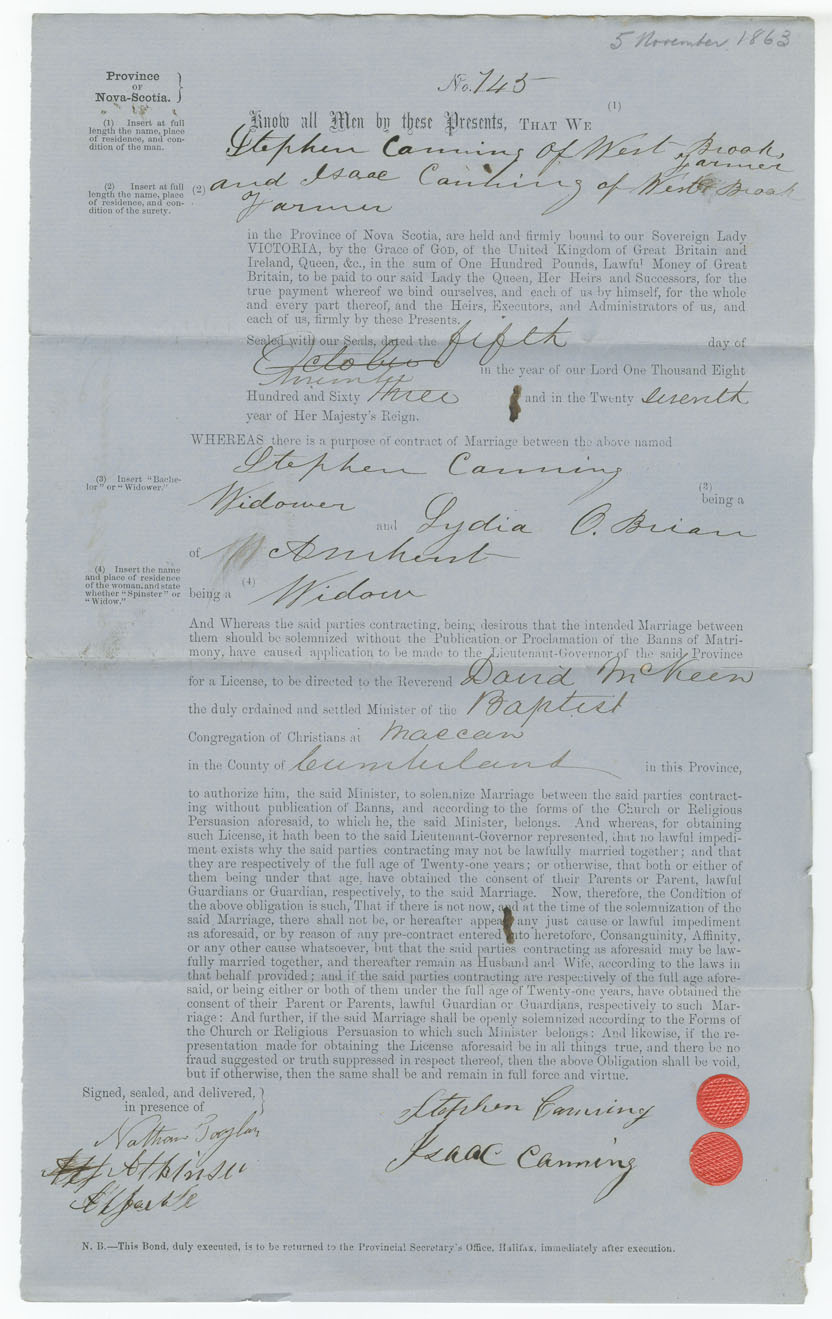 5 November 1863
Province
OF
Nova-Scotia.
No. 145
(1)
Know all Men by these Presents, THAT WE
(1) Insert at full
length the name, place
of residence, and con-
dition of the man.
Stephen Canning of West Brook,
Farmer
(2) Insert at full
length the name, place
of residence, and con-
dition of the surety.
(2) and Isaac Canning of West Brook
Farmer
in the Province of Nova Scotia, are held and firmly bound to our Sovereign Lady
VICTORIA, by the Grace of GOD, of the United Kingdom of Great Britain and
Ireland, Queen, &c., in the sum of One Hundred Pounds, Lawful Money of Great
Britain, to be paid to our said Lady the Queen, Her Heirs and Successors, for the
true payment whereof we bind ourselves, and each of us by himself, for the whole
and every part thereof, and the Heirs, Executors, and Administrators of us, and
each of us, firmly by these Presents.
Sealed with our Seals, dated the fifth day of
October
November
in the year of our Lord One Thousand Eight
Hundred and Sixty three and in the Twenty seventh
year of Her Majesty's Reign.
WHEREAS there is a purpose of contract of Marriage between the above named
Stephen Canning
(3) Insert "Bache-
lor" or "Widower."
(3)
Widower being a
and Lydia O. Brian
of Amherst
(4) Insert the name
and place of residence
of the woman, and state
whether "Spinster" or
"Widow."
being a (4) Widow
And Whereas the said parties contracting, being desirous that the intended Marriage between
them should be solemnized without the Publication or Proclamation of the Banns of Matri-
mony, have caused application to be made to the Lieutenant-Governor of the said Province
for a License, to be directed to the Reverend David McKeen
the duly ordained and settled Minister of the Baptist
Congregation of Christians at Maccan
in the County of Cumberland in this Province,
to authorize him, the said Minister, to solemnize Marriage between the said parties contract-
ing without publication of Banns, and according to the forms of the Church or Religious
Persuasion aforesaid, to which he, the said Minister, belongs. And whereas, for obtaining
such License, it hath been to the said Lieutenant-Governor represented, that no lawful impedi-
ment exists why the said parties contracting may not be lawfully married together; and that
they are respectively of the full age of Twenty-one years; or otherwise, that both or either of
them being under that age, have obtained the consent of their Parents or Parent, lawful
Guardians or Guardian, respectively, to the said Marriage. Now, therefore, the Condition of
the above obligation is such, That if there is not now, and at the time of the solemnization of the
said Marriage, there shall not be, or hereafter appear any just cause or lawful impediment
as aforesaid, or by reason of any pre-contract entered into heretofore, Consanguinity, Affinity,
or any other cause whatsoever, but that the said parties contracting as aforesaid may be law-
fully married together, and thereafter remain as Husband and Wife, according to the laws in
that behalf provided; and if the said parties contracting are respectively of the full age afore-
said, or being either or both of them under the full age of Twenty-one years, have obtained the
consent of their Parent or Parents, lawful Guardian or Guardians, respectively to such Mar-
riage: And further, if the said Marriage shall be openly solemnized according to the Forms of
the Church or Religious Persuasion to which such Minister belongs: And likewise, if the re-
presentation made for obtaining the License aforesaid be in all things true, and there be no
fraud suggested or truth suppressed in respect thereof, then the above Obligation shall be void,
but if otherwise, then the same shall be and remain in full force and virtue.
Signed, sealed, and delivered,
in presence of
Stephen Canning
Nathan
Isaac Canning
Atkinson
N. B.—This Bond, duly executed, is to be returned to the Provincial Secretary's Office, Halifax, immediately after execution.